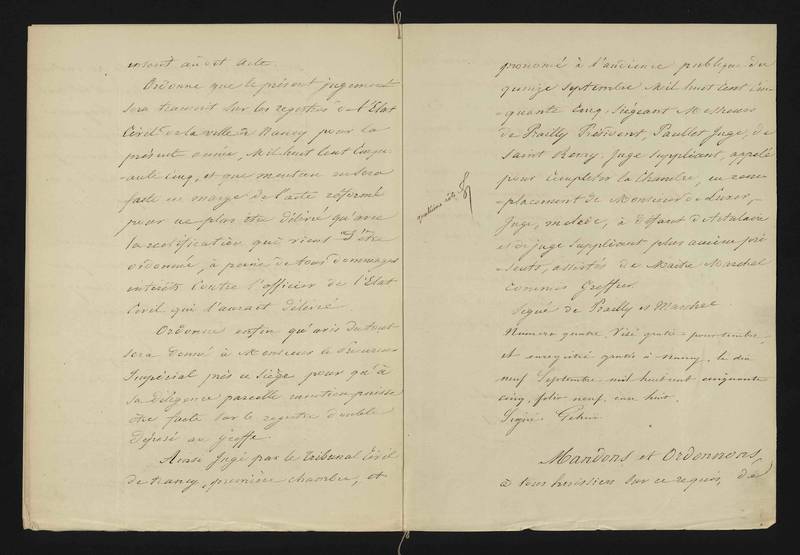 audit acte.
Ordonne que le présent jugement
sera transcrit sur les registres de l'Etat
Civil de la ville de Nancy pour la
présente année, Mil huit Cent Cinqu-
ante Cinq, et que mention en sera
faite en marge de l'acte réformé
pour ne plus être délivré qu'avec
la rectification qui vient d'être
ordonnée, à peine de tous dommages
intérêts contre l'officier de l'Etat
Civil qui l'aurait délivré.
Ordonne enfin qu'avis du tout
sera donné à Monsieur le Procureur
Impérial près ce siège pour qu'à
sa diligence pareille mention puisse
être faite sur le registre double
déposé au greffe.
Ainsi Jugé par le Tribunal Civil
de Nancy, première chambre, et
prononcé à l'audience publique du
quinze septembre Mil huit Cent Cin-
quante Cinq. Siégeant Messieurs
de Prailly Président, Paullet Juge, de
Saint Remy, Juge suppléant, appelé
pour compléter la Chambre, en rem-
placement de Monsieur de Luxer,
Juge, malade, à défaut de titulaire
et de juge suppléant plus ancien pré-
sents, assistés de Maître Marchal
Commis Greffier.
Signé de Prailly et Marchal
Numéro quatre. Visé gratis pour timbre,
et enregistré gratis à Nancy, le dix
neuf Septembre mil huit cent cinquante
cinq, folio neuf, case huit.
Signé
Mandons et Ordonnons,
à tous huissiers sur ce requis, de